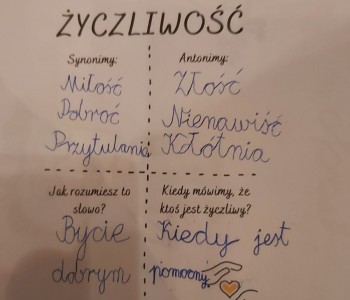 ŻYCZLIWOŚĆ
Synonimy:
Miłość
Dobroć
Przytulania
Antonimy:
Złość
Nienawiść
Kłótnia
Jak rozumiesz to
słowo?
Bycie
dobrym
Kiedy mówimy, że
ktoś jest życzliwy?
Kiedy jest
pomocny